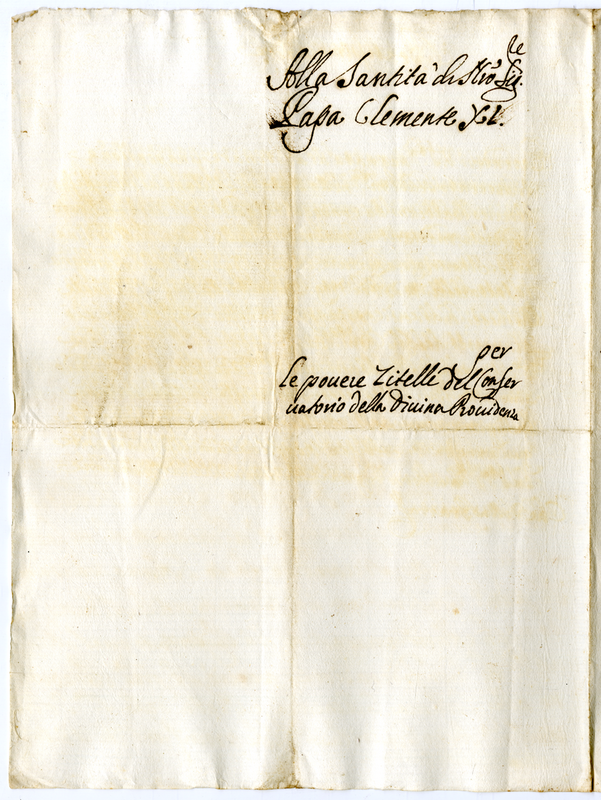 Alla Santità di Nro Sigre
Papa Clemente XI.
per
le pouere Zitelle del Conser
uatorio della Diuina Prouidenza